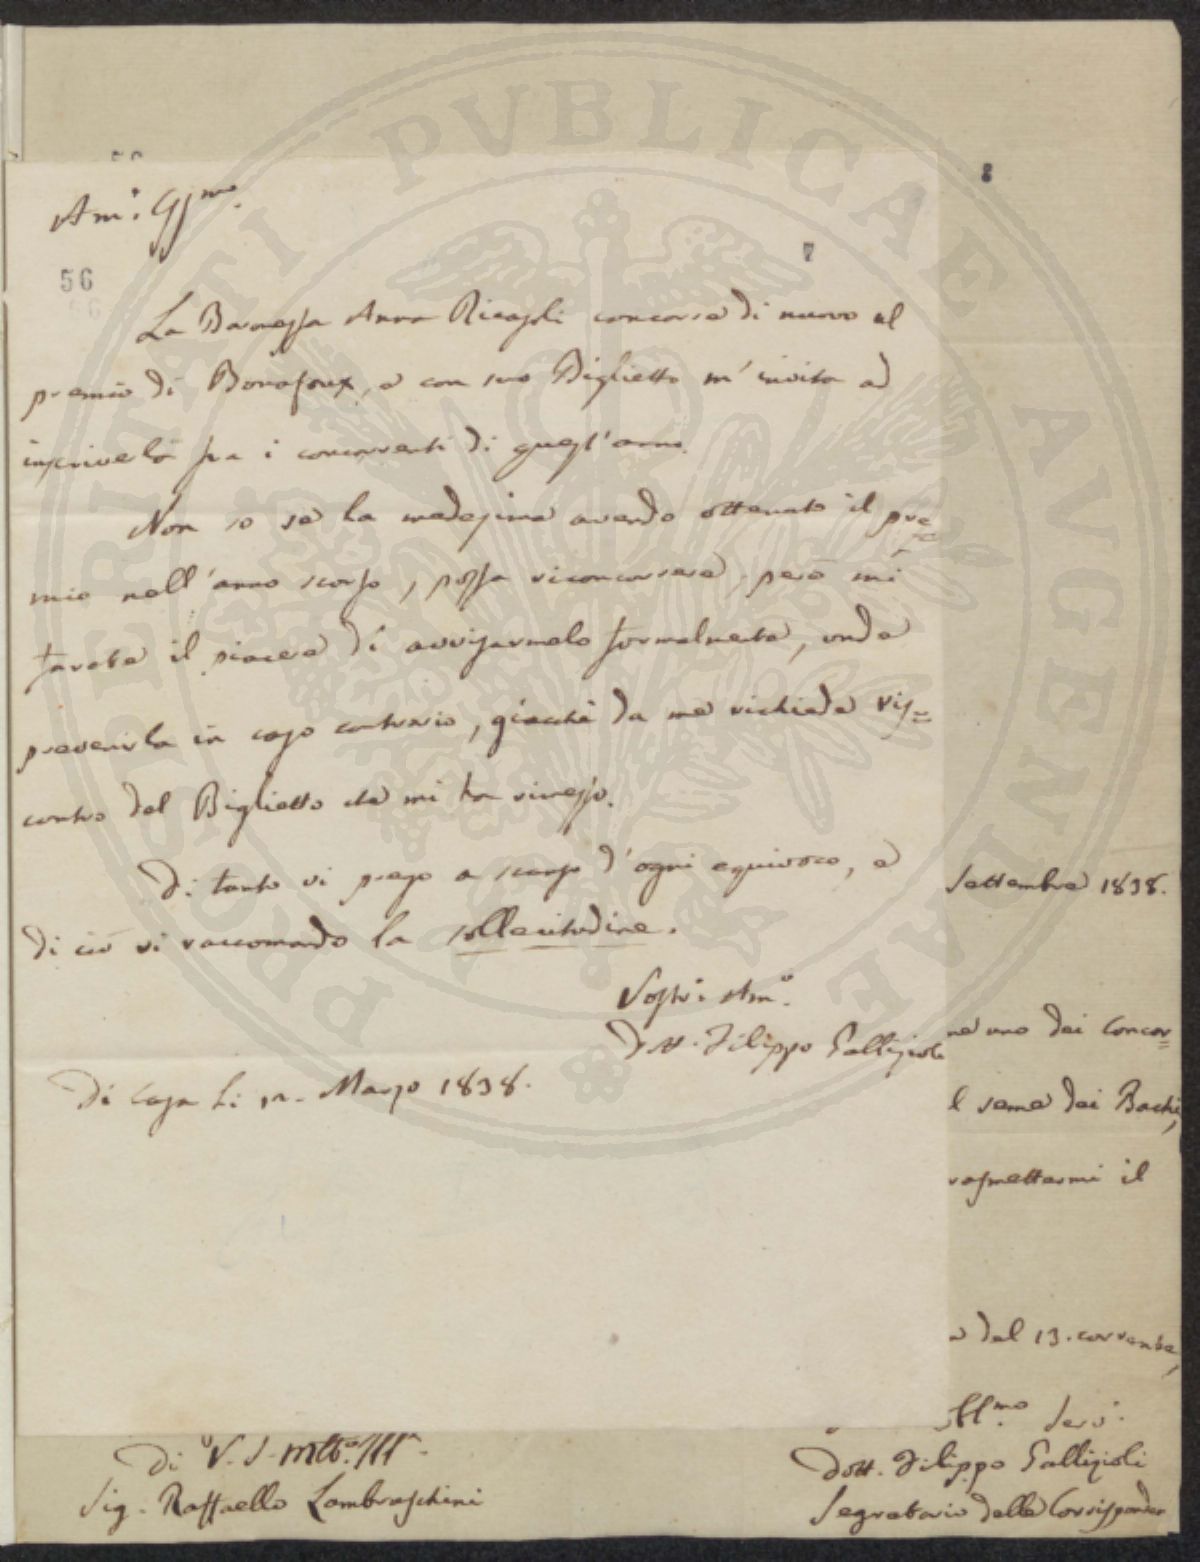 Am.o Gj.mo
8
7
56
La Baronessa Anna Ricasoli concorse di nuovo al
premio di Bonafoux, e con suo Biglietto m'invita ad
inscriverla fra i concorrenti di quest'anno.
Non so se la medesima avendo ottenuto il pre=
mio nell'anno scorso, possa riconcorrere, però mi
farete il piacere di avvisarmelo formalmente, onde
prevenirla in caso contrario, giacchè da me richiede ris=
contro del Biglietto che mi ha rimesso.
Di tanto vi prego a scanso d'ogni equivoco, e
di ciò vi raccomando la sollecitudine.
Vostro Am.o
Dott. Filippo Gallizioli
Di Casa li Marzo 1838.
Settembre 1838.
ne uno dei Concor=
l seme dei Bachi,
rasmettermi il
a del 13. corrente,
bbl.mo Serv.
Di V. S. Mtto. Ill
Sig. Raffaello Lambruschini
Dott. Filippo Gallizioli
Segretario delle Corrisponden
PVBLICAE
PROSPERITATI
AVGENDAE